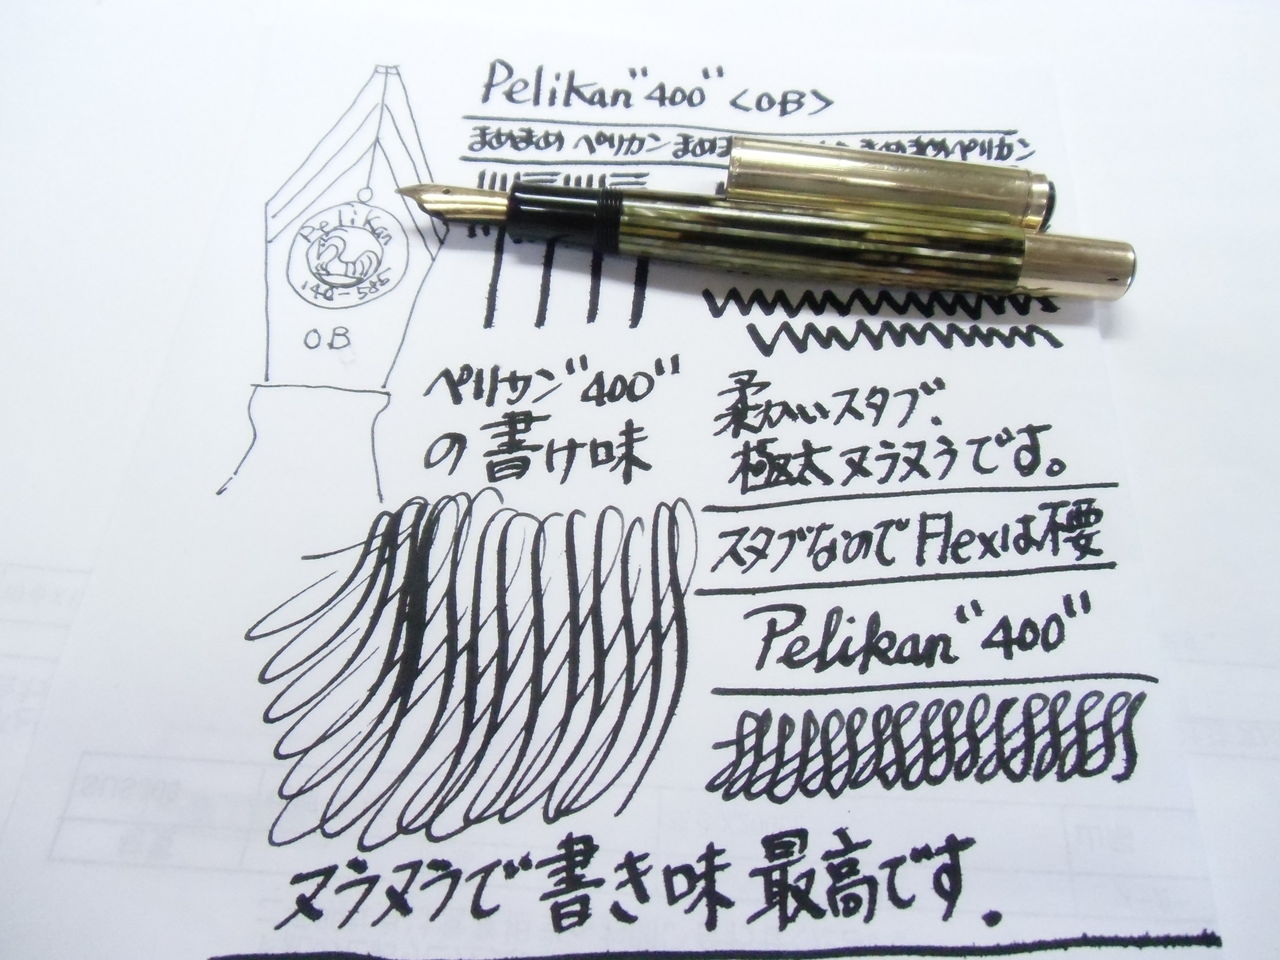 Pelikan "400" <OB>
まめまめ ペリカン まめま まめまめペリカン
Pelikan
14C-585
OB
ペリカン"400"
の書け味
柔かいスタブ、
極太ヌラヌラです。
スタブなのでFlexは不要
Pelikan "400"
ヌラヌラで書き味 最高です.